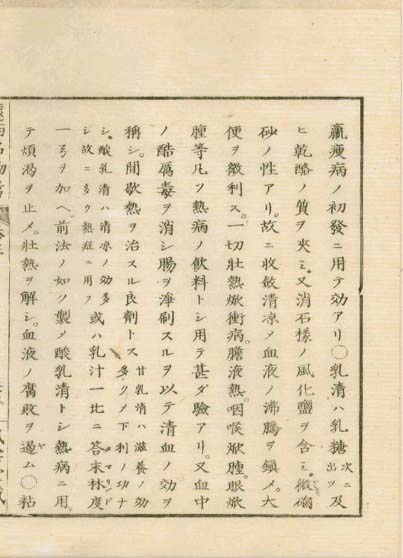 羸瘦病ノ初發ニ用テ効アリ〇乳清ハ乳糖次ニ出ツ及
ヒ乾酪ノ質ヲ夾ミ又消石樣ノ風化鹽ヲ含ミ微
砂ノ性アリ。故ニ收斂清凉メ血液ノ沸騰ヲ鎮メ。大
便ヲ微利ス。一切壯熱焮衝病。膽液熱。咽喉焮腫。眼焮
腫等凡ソ熱病ノ飲料トシ用テ甚ダ驗アリ。又血中
ノ酷厲毒ヲ消シ腸ヲ淨刷スルヲ以テ清血ノ効ヲ
稱シ。間歇熱ヲ治スル良劑トス甘乳清ハ滋養ノ効多クメ下利ノ功ナ
シ酸乳清ハ清凉ノ効多シ故ニ多ク熱症ニ用フ或ハ乳汁一匕ニ答末林度タマリンド
一ヲ加ヘ。前法ノ如ク製メ酸乳清トシ熱病ニ用。
テ煩渇ヲ止メ。壯熱ヲ解シ。血液ノ腐敗ヲ遏ム〇粘